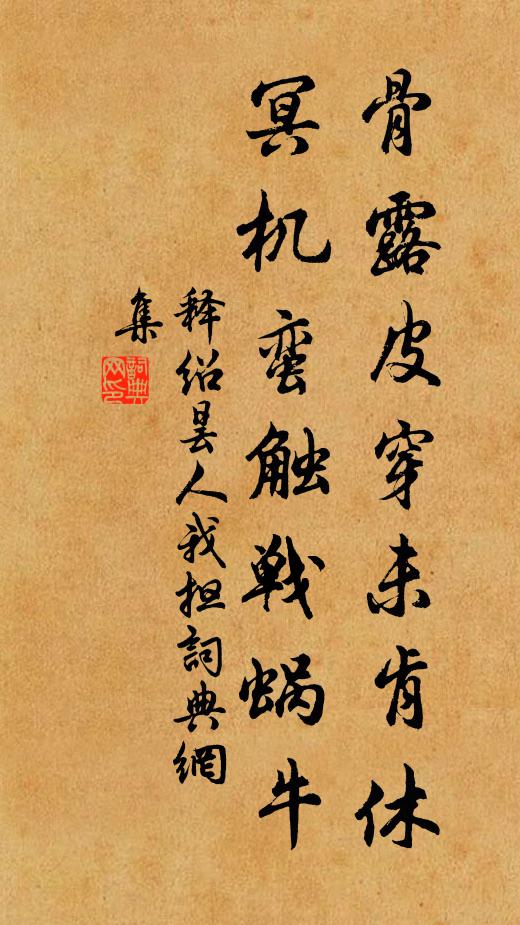 骨露皮穿未肯休
冥机蛮触戦蜗牛
释绍昙人我担詞典網
集
詞典
网印